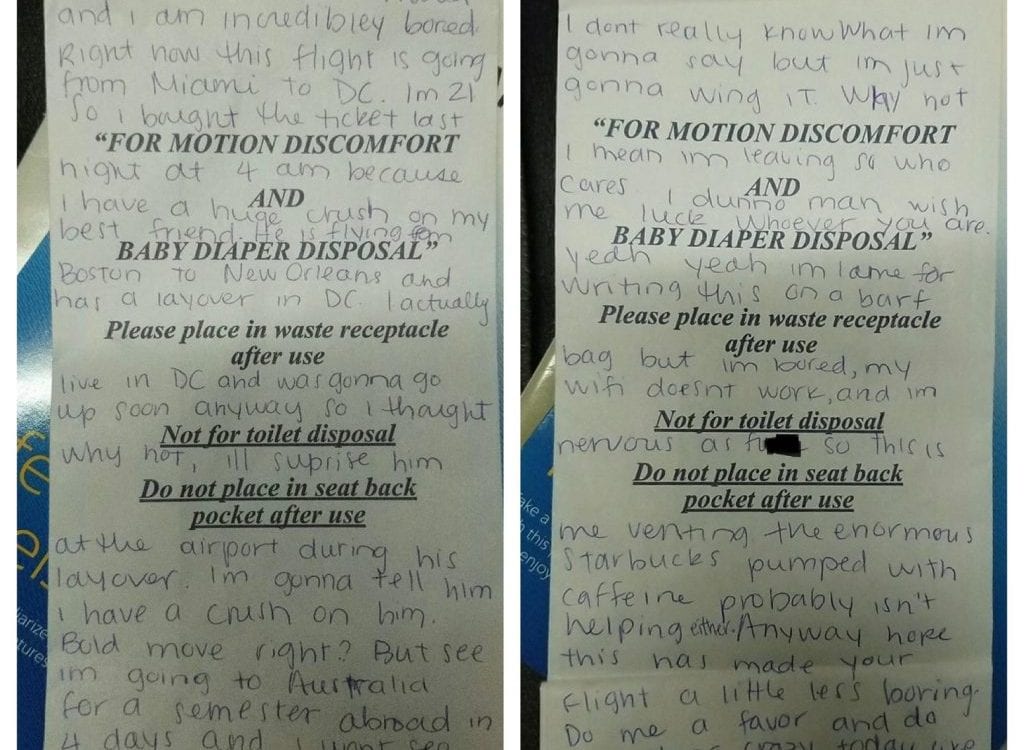 and i am incredibley bored.
Right now this flight is going
from Miami to DC. Im 21
so i bought the ticket last
"FOR MOTION DISCOMFORT
night at 4 am because
AND
i have a huge crush on my
best friend. He is flying from
BABY DIAPER DISPOSAL"
Boston to New Orleans and
has a layover in DC. I actually
Please place in waste receptacle
after use
live in DC and was gonna go
up soon anyway so i thought
Not for toilet disposal
why not, ill suprise him
Do not place in seat back
pocket after use
at the airport during his
layover. Im gonna tell him
i have a crush on him.
Bold move right? But see
im going to Australia
for a semester abroad in
4 days and i
I dont really know what im
gonna say but im just
gonna wing it. Why not
"FOR MOTION DISCOMFORT
I mean im leaving so who
AND
cares. I dunno man wish
me luck whoever you are.
BABY DIAPER DISPOSAL"
yeah yeah im lame for
writing this on a barf
Please place in waste receptacle
after use
bag but im bored, my
wifi doesnt work, and im
Not for toilet disposal
nervous as so this is
Do not place in seat back
pocket after use
me venting the enormous
Starbucks pumped with
caffeine probably isn't
helping either. Anyway hope
this has made your
flight a little less booring.
Do me a favor and do
crazy today
fe
els
ake a
this
enjoy
larize
tures